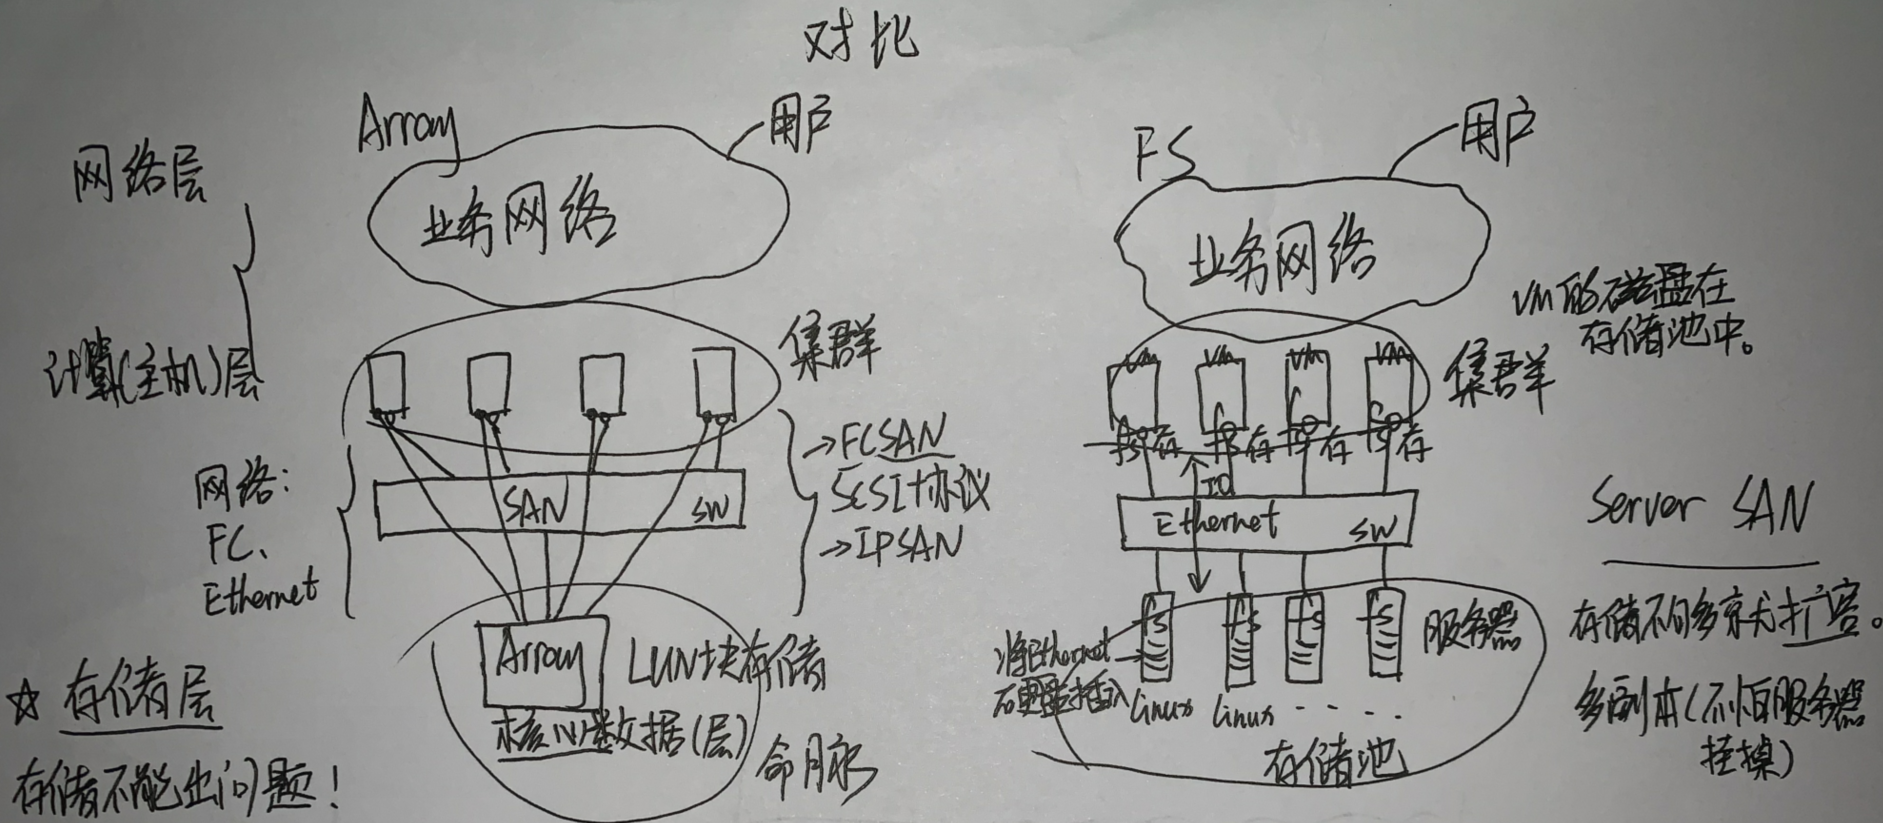 对比
网络层
计算(主机)层
网络:
FC、
Ethernet
☆ 存储层
存储不能出问题!
Array
用户
业务网络
集群
SAN
SW
→FCSAN
SCSI协议
→IPSAN
Array
LUN块存储
核心数据(层)
命脉
FS
用户
业务网络
VM的磁盘在
存储池中。
VM VM VM VM
集群
存 存 存 存
IO
Ethernet
SW
Server SAN
FS FS FS FS
服务器
将Ethernet
硬盘插入
Linux Linux ·····
存储池
存储不够
扩容。
多副本(不怕服务器
挂掉)